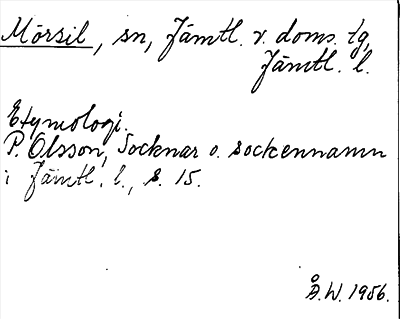 Mörsil, sn, Jämtl. v. doms. tg,
Jämtl. l.
Etymologi.
P. Olsson, Socknar o. sockennamn
i Jämtl. l., s. 15.
Å.W. 1956.